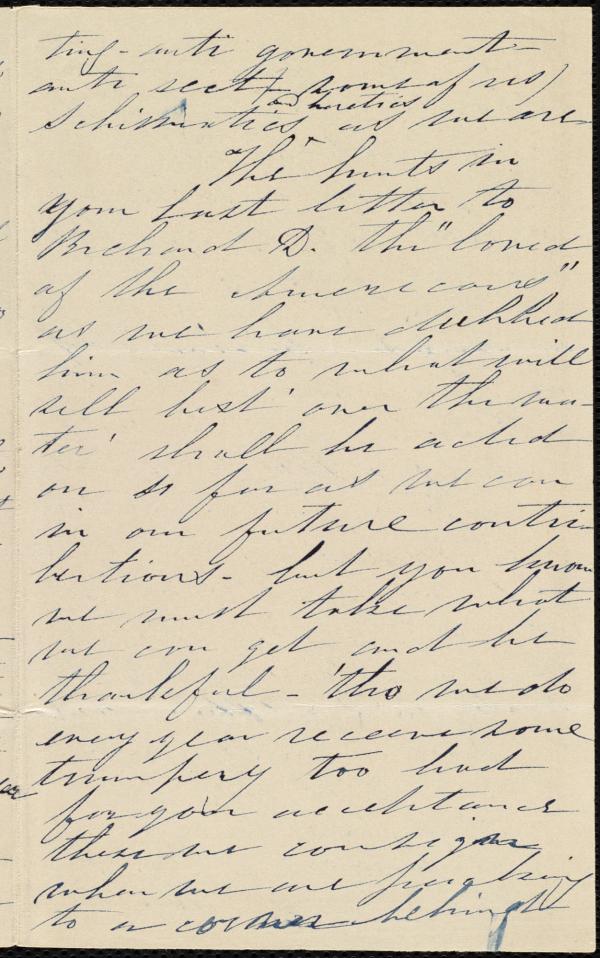 ting - anti government -
anti sect (some of us)
and heretics
schismatics as we are
The hints in
your last letter to
Richard D. the "loved
of the Americans"
as we have dubbed
him as to what will
sell best 'over the wa-
ter' shall be acted
on so far as we can
in our future contri-
butions - but you know
we must take what
we can get and be
thankful - 'tho we do
every year receive some
trumpery too bad
for your acceptance
these we consign
when we are packing
to a corner behind